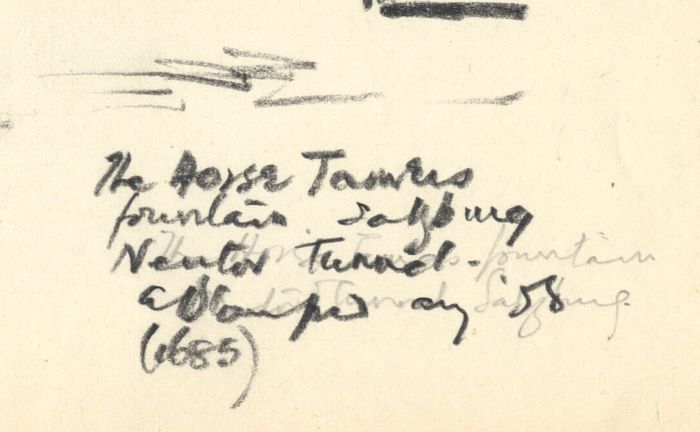 The Horse Tamers
fountain Salzburg
Neutor Tunnel -
The Horse Tamers fountain
Tunnel Salzburg.
Blampied '58
(1685)